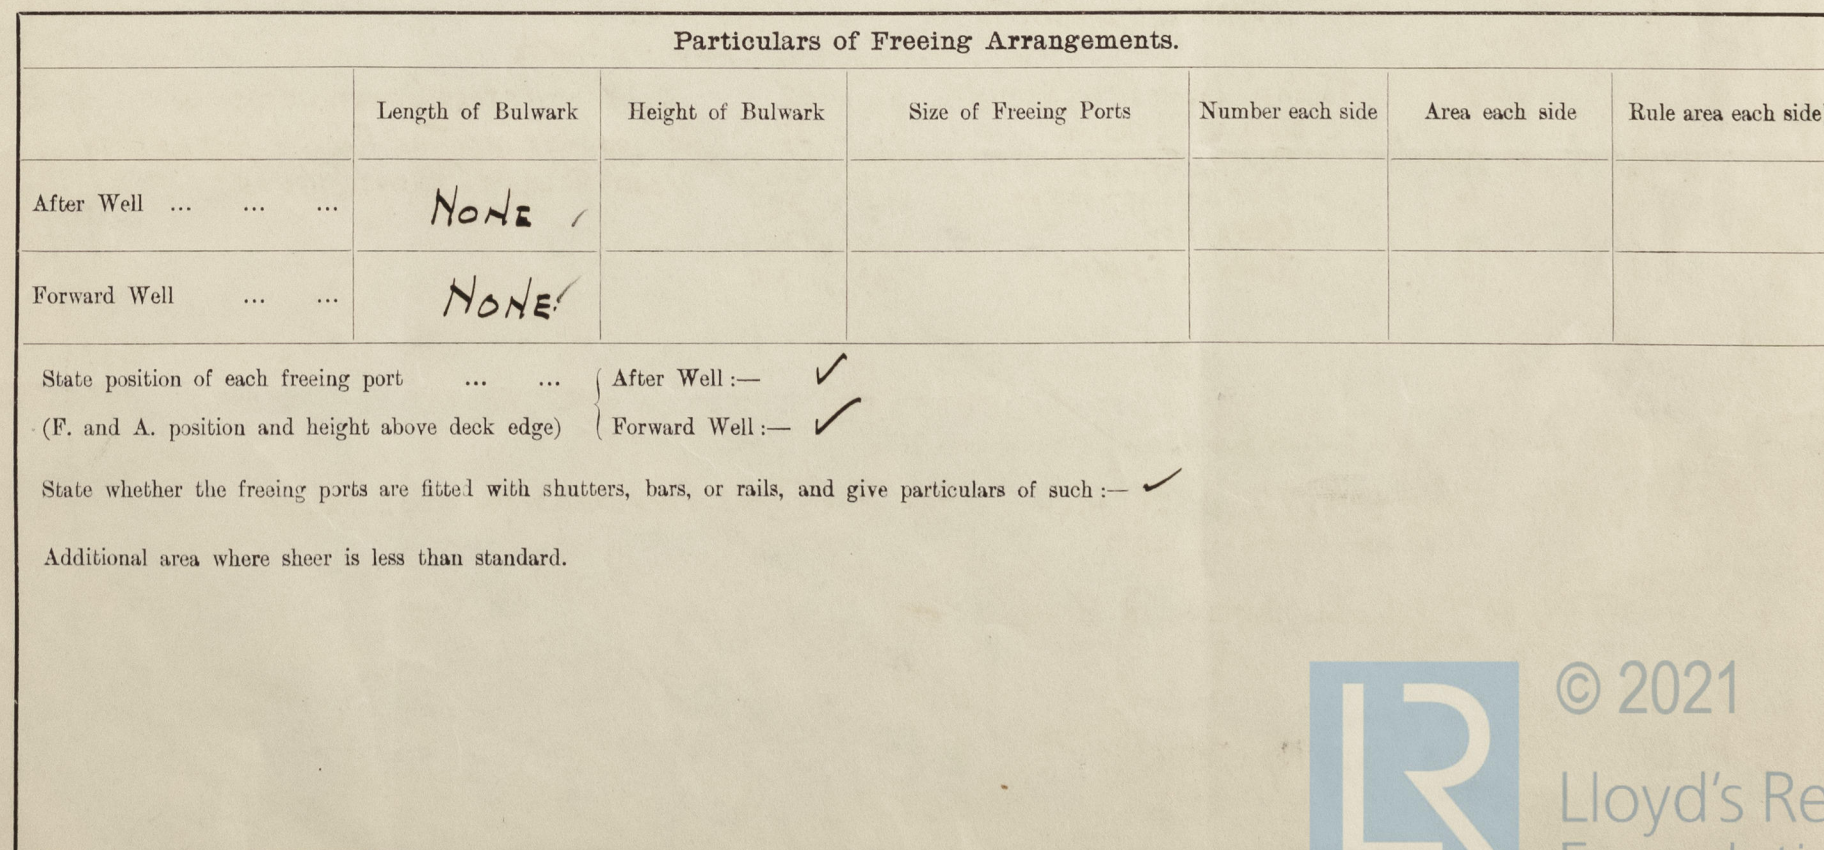 Particulars of Freeing Arrangements.
Length of Bulwark Height of Bulwark Size of Freeing Ports Number each side Area each side Rule area each side
After Well ... ... ... NONE
Forward Well ... ... NONE
State position of each freeing port ... ... After Well :— ✓
(F. and A. position and height above deck edge) Forward Well :— ✓
State whether the freeing ports are fitted with shutters, bars, or rails, and give particulars of such :— ✓
Additional area where sheer is less than standard.
LR © 2021
Lloyd's Re